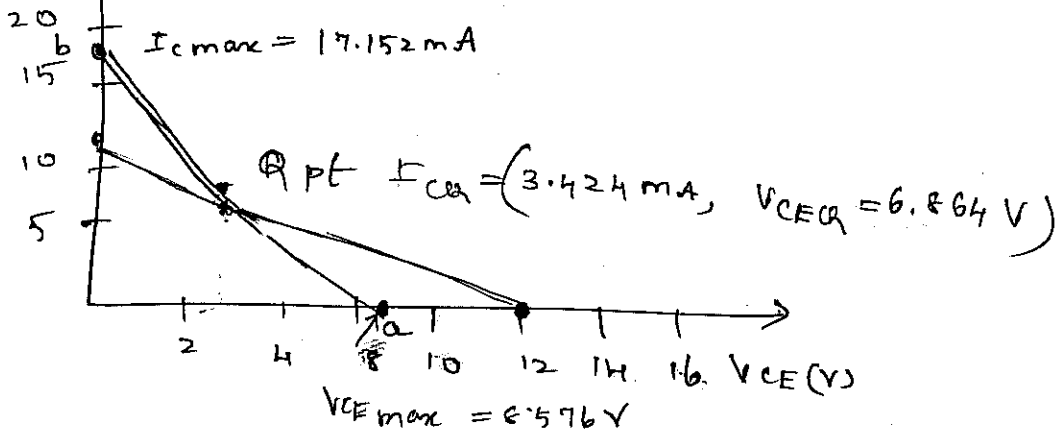 20
b Ic max = 17.152 mA
15
10
Q pt ICQ = (3.424 mA, VCEQ = 6.864 V)
5
a
2 4 8 10 12 14 16. VCE (V)
VCE max = 8.576 V